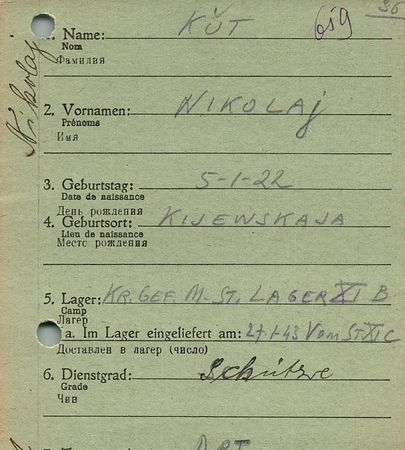 36
1. Name: KŬT 619
Nom
Фамилия
Nikolaj
2. Vornamen: NIKOLAJ
Prénoms
Имя
3. Geburtstag: 5-1-22
Date de naissance
День рождения
4. Geburtsort: KIJEWSKAJA
Lieu de naissance
Место рождения
5. Lager: KR. GEF. M-ST. LAGER XI B
Camp
Лагер
a. Im Lager eingeliefert am: 27.1.43 Vom ST XI C
Доставлен в лагер (число)
6. Dienstgrad: Schütze
Grade
Чин